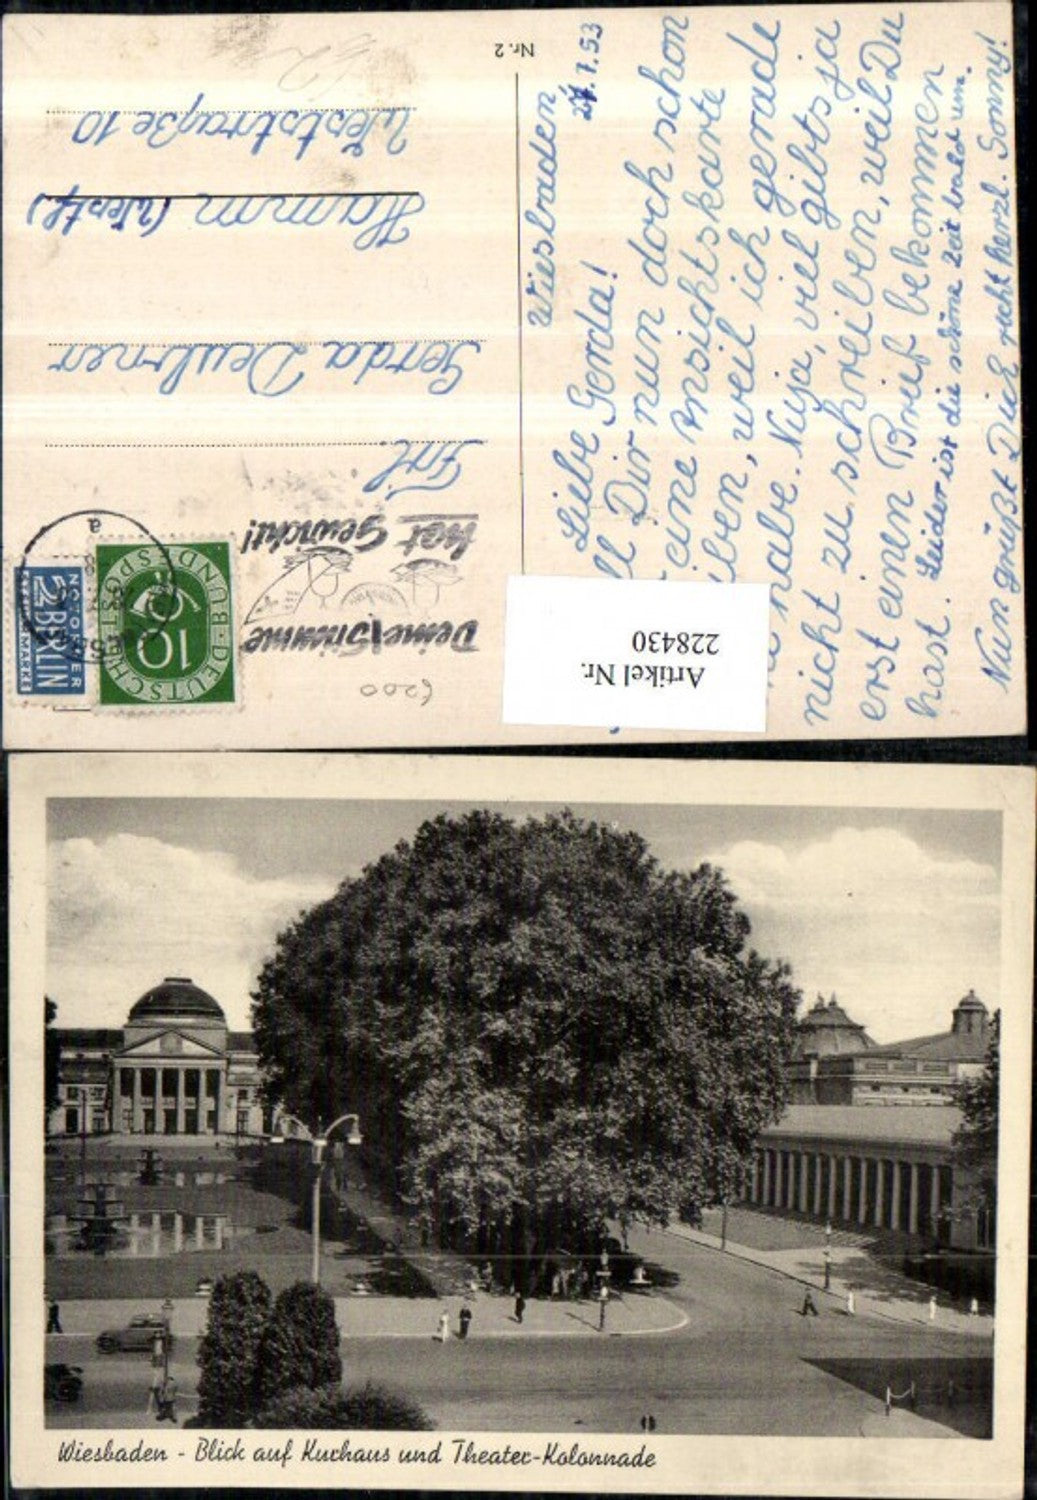 Nr. 2
Wiesbaden,
27.7.53
Liebe Gerda!
ll Dir nun doch schon
eine Ansichtskarte
iben, weil ich gerade
habe. Nuja, viel gibts ja
nicht zu schreiben, weil Du
erst einen Brief bekommen
hast. Leider ist die schöne Zeit bald um.
Nun grüßt Dich recht herzl. Sonny!
Frl.
Gerda Deulmer
Hamm (Westf.)
Weststraße 10
Deine Stimme
hat Gewicht!
DEUTSCHE BUNDESPOST
10
NOTOPFER
2 BERLIN
STEUERMARKE
a
6200
Artikel Nr.
228430
Wiesbaden - Blick auf Kurhaus und Theater-Kolonnade